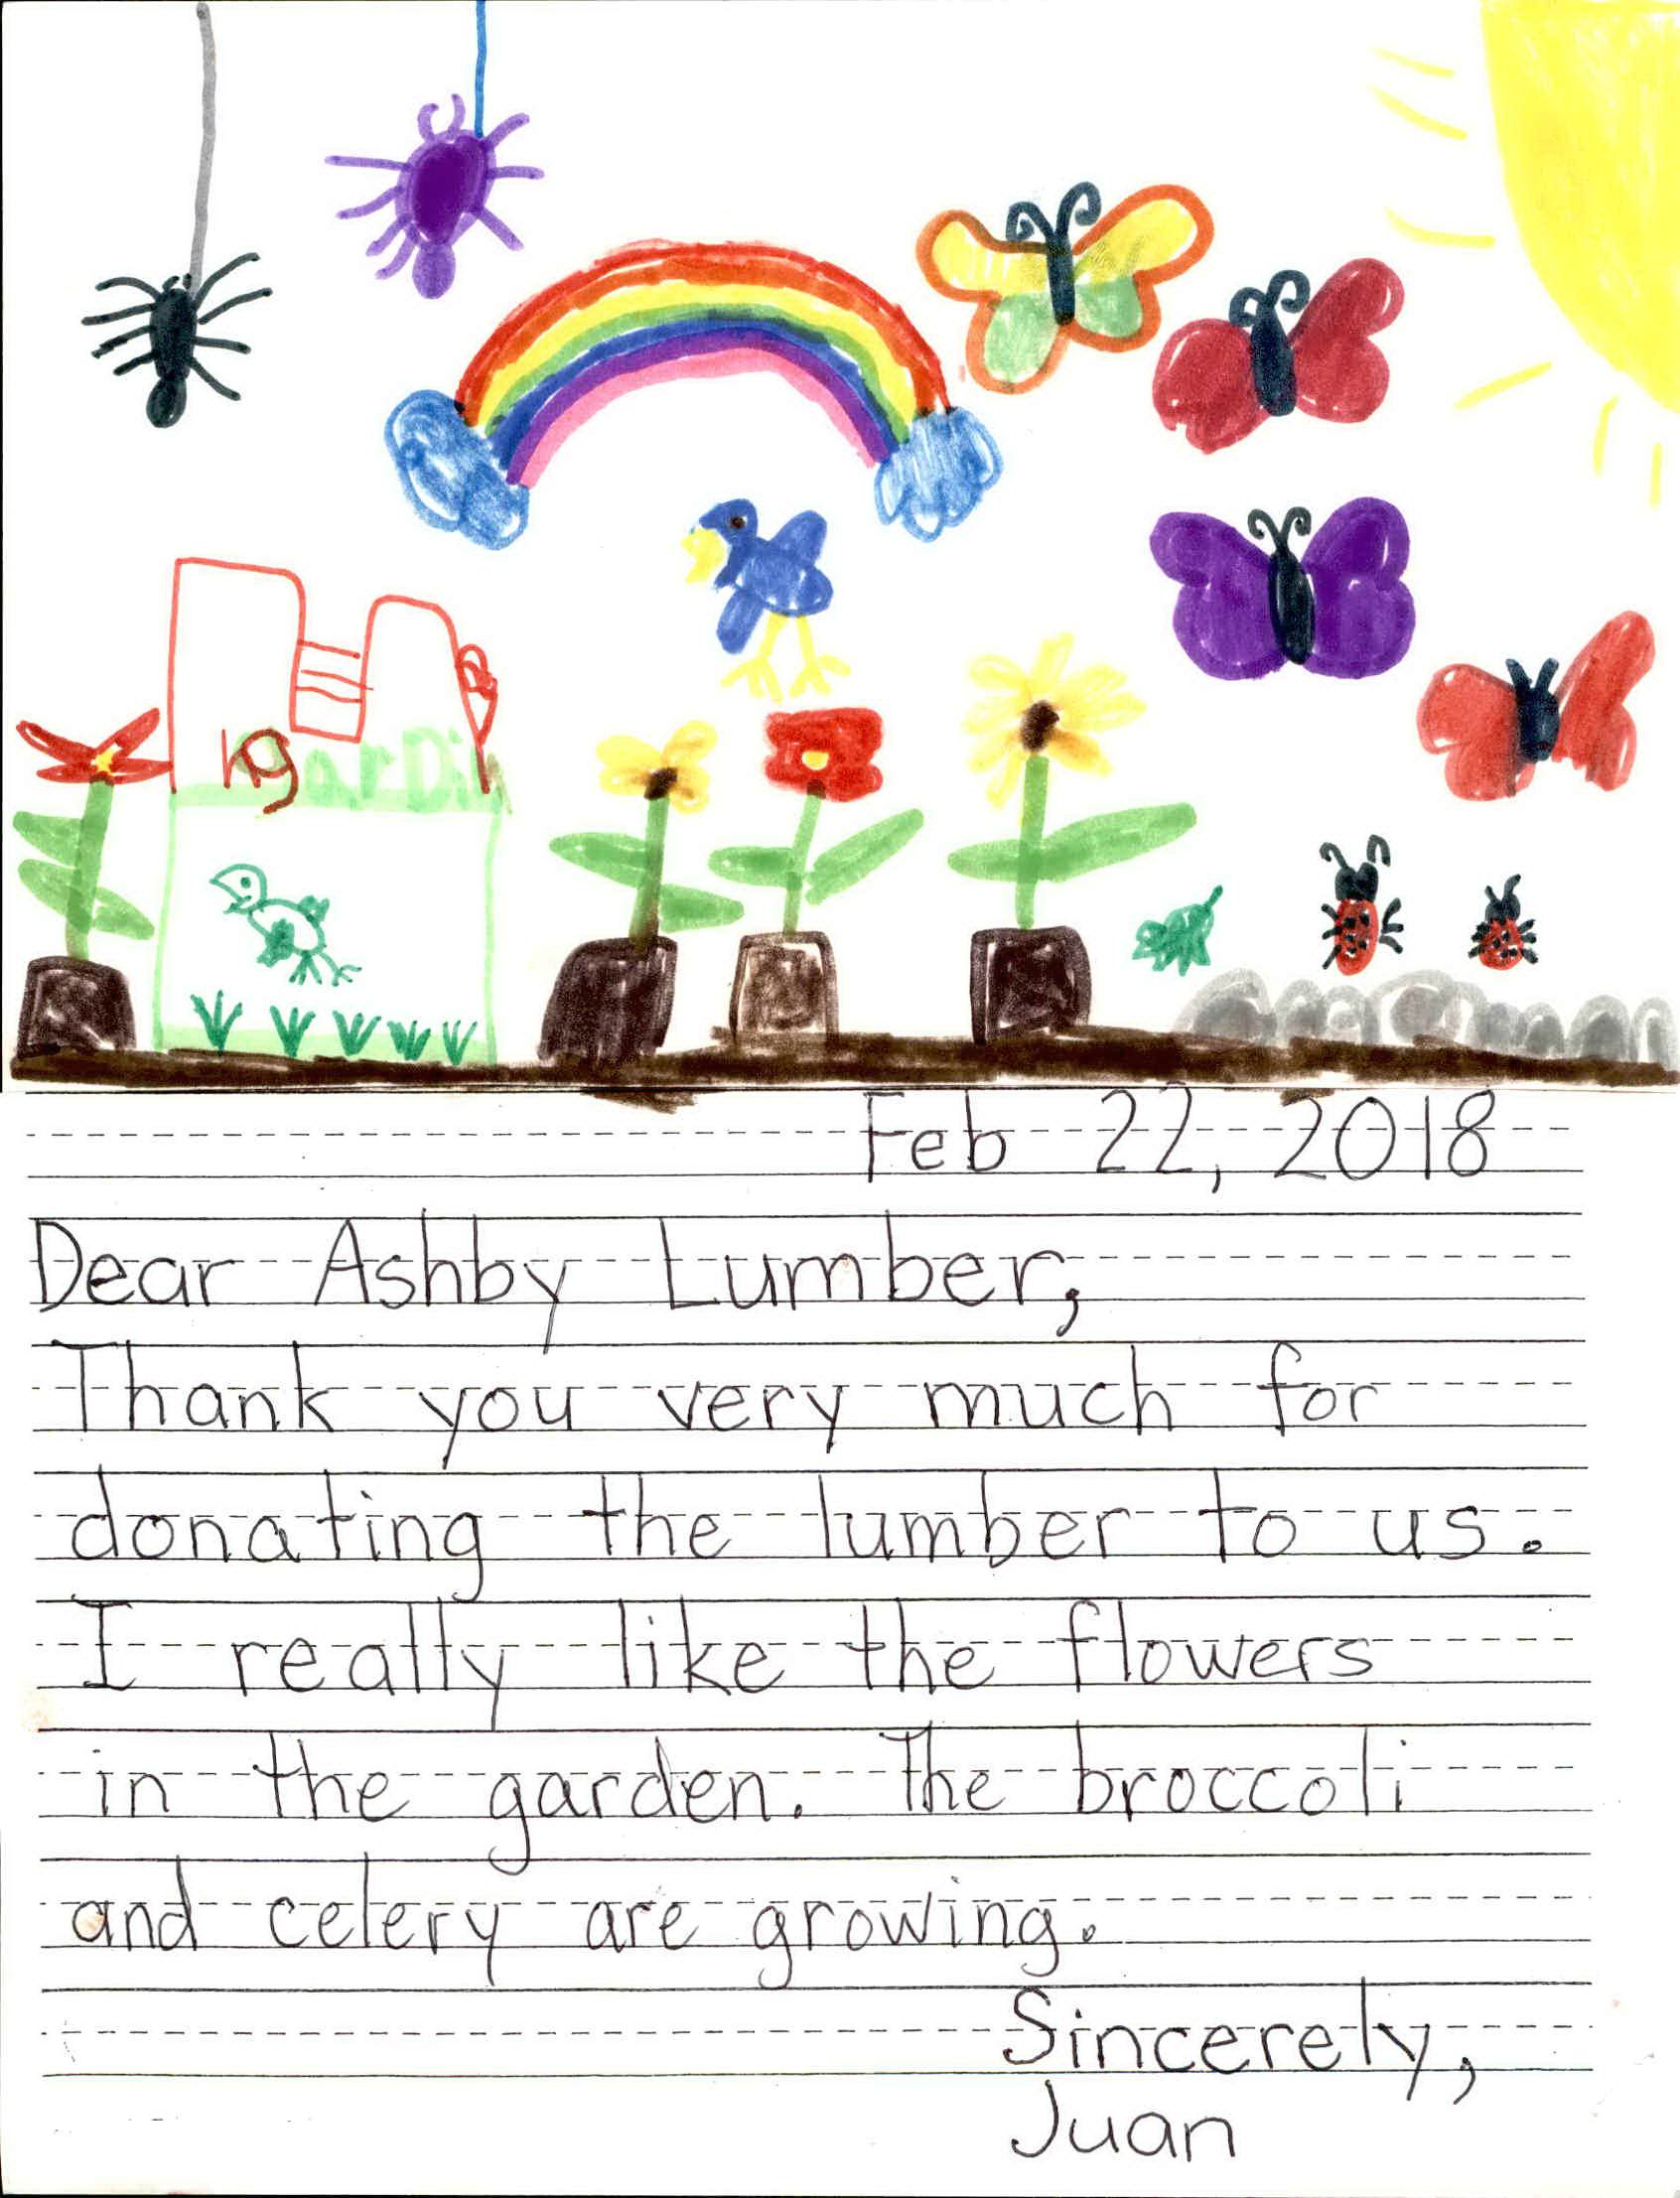 garDin
Feb 22, 2018
Dear Ashby Lumber,
Thank you very much for
donating the lumber to us.
I really like the flowers
in the garden. The broccoli
and celery are growing.
Sincerely,
Juan